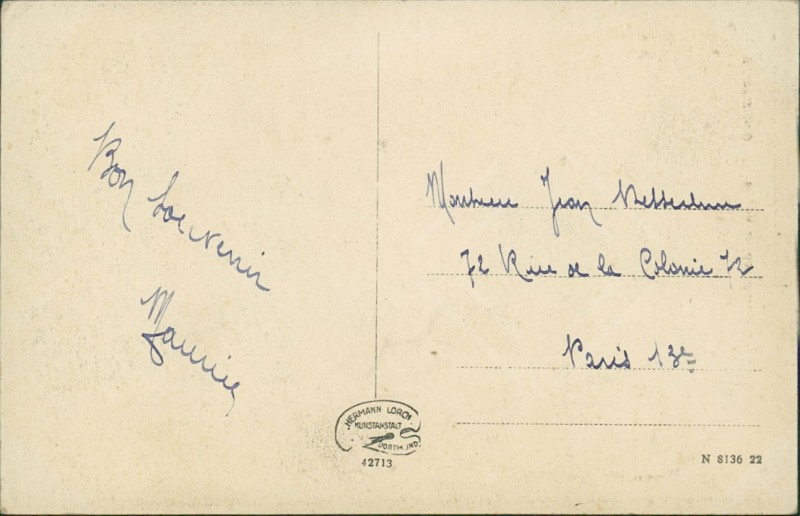 Bon Souvenir
Maurice
Monsieur Jean
72 Rue de la Colonie 72
Paris 13e
HERMANN LORCH
KUNSTANSTALT
DORTMUND
42713
N 8136 22